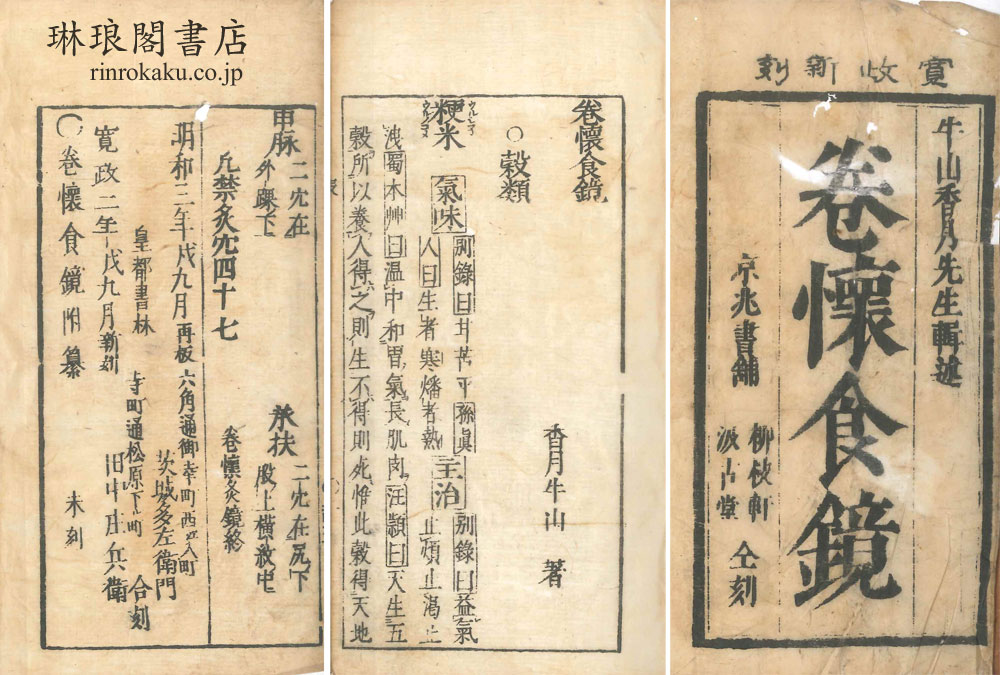 琳琅閣書店
rinrokaku.co.jp
寛政新刻
牛山香月先生輯述
卷懷食鏡
京兆書舖
柳枝軒
汲古堂
仝刻
卷懷食鏡
香月牛山 著
○穀類
粳米 ウルシ子 氣味 別錄曰甘苦平孫眞
人曰生者寒燔者熱 主治 別錄曰益氣
止煩止渴止
洩蜀本艸曰温中和胃氣長肌肉汪頴曰天生五
穀所以養人得之則生不得則死惟此穀得天地
申脉 二穴在
外踝下
承扶 二穴在尻下
股上橫紋中
凢禁灸穴四十七
卷懷灸鏡終
明和三年戌九月再板 六角通御幸町西江入町
茨城多左衛門
皇都書林
合刻
寺町通松原下ル町
寛政二年戌九月新刻
田中庄兵衛
○卷懷食鏡附纂
未刻